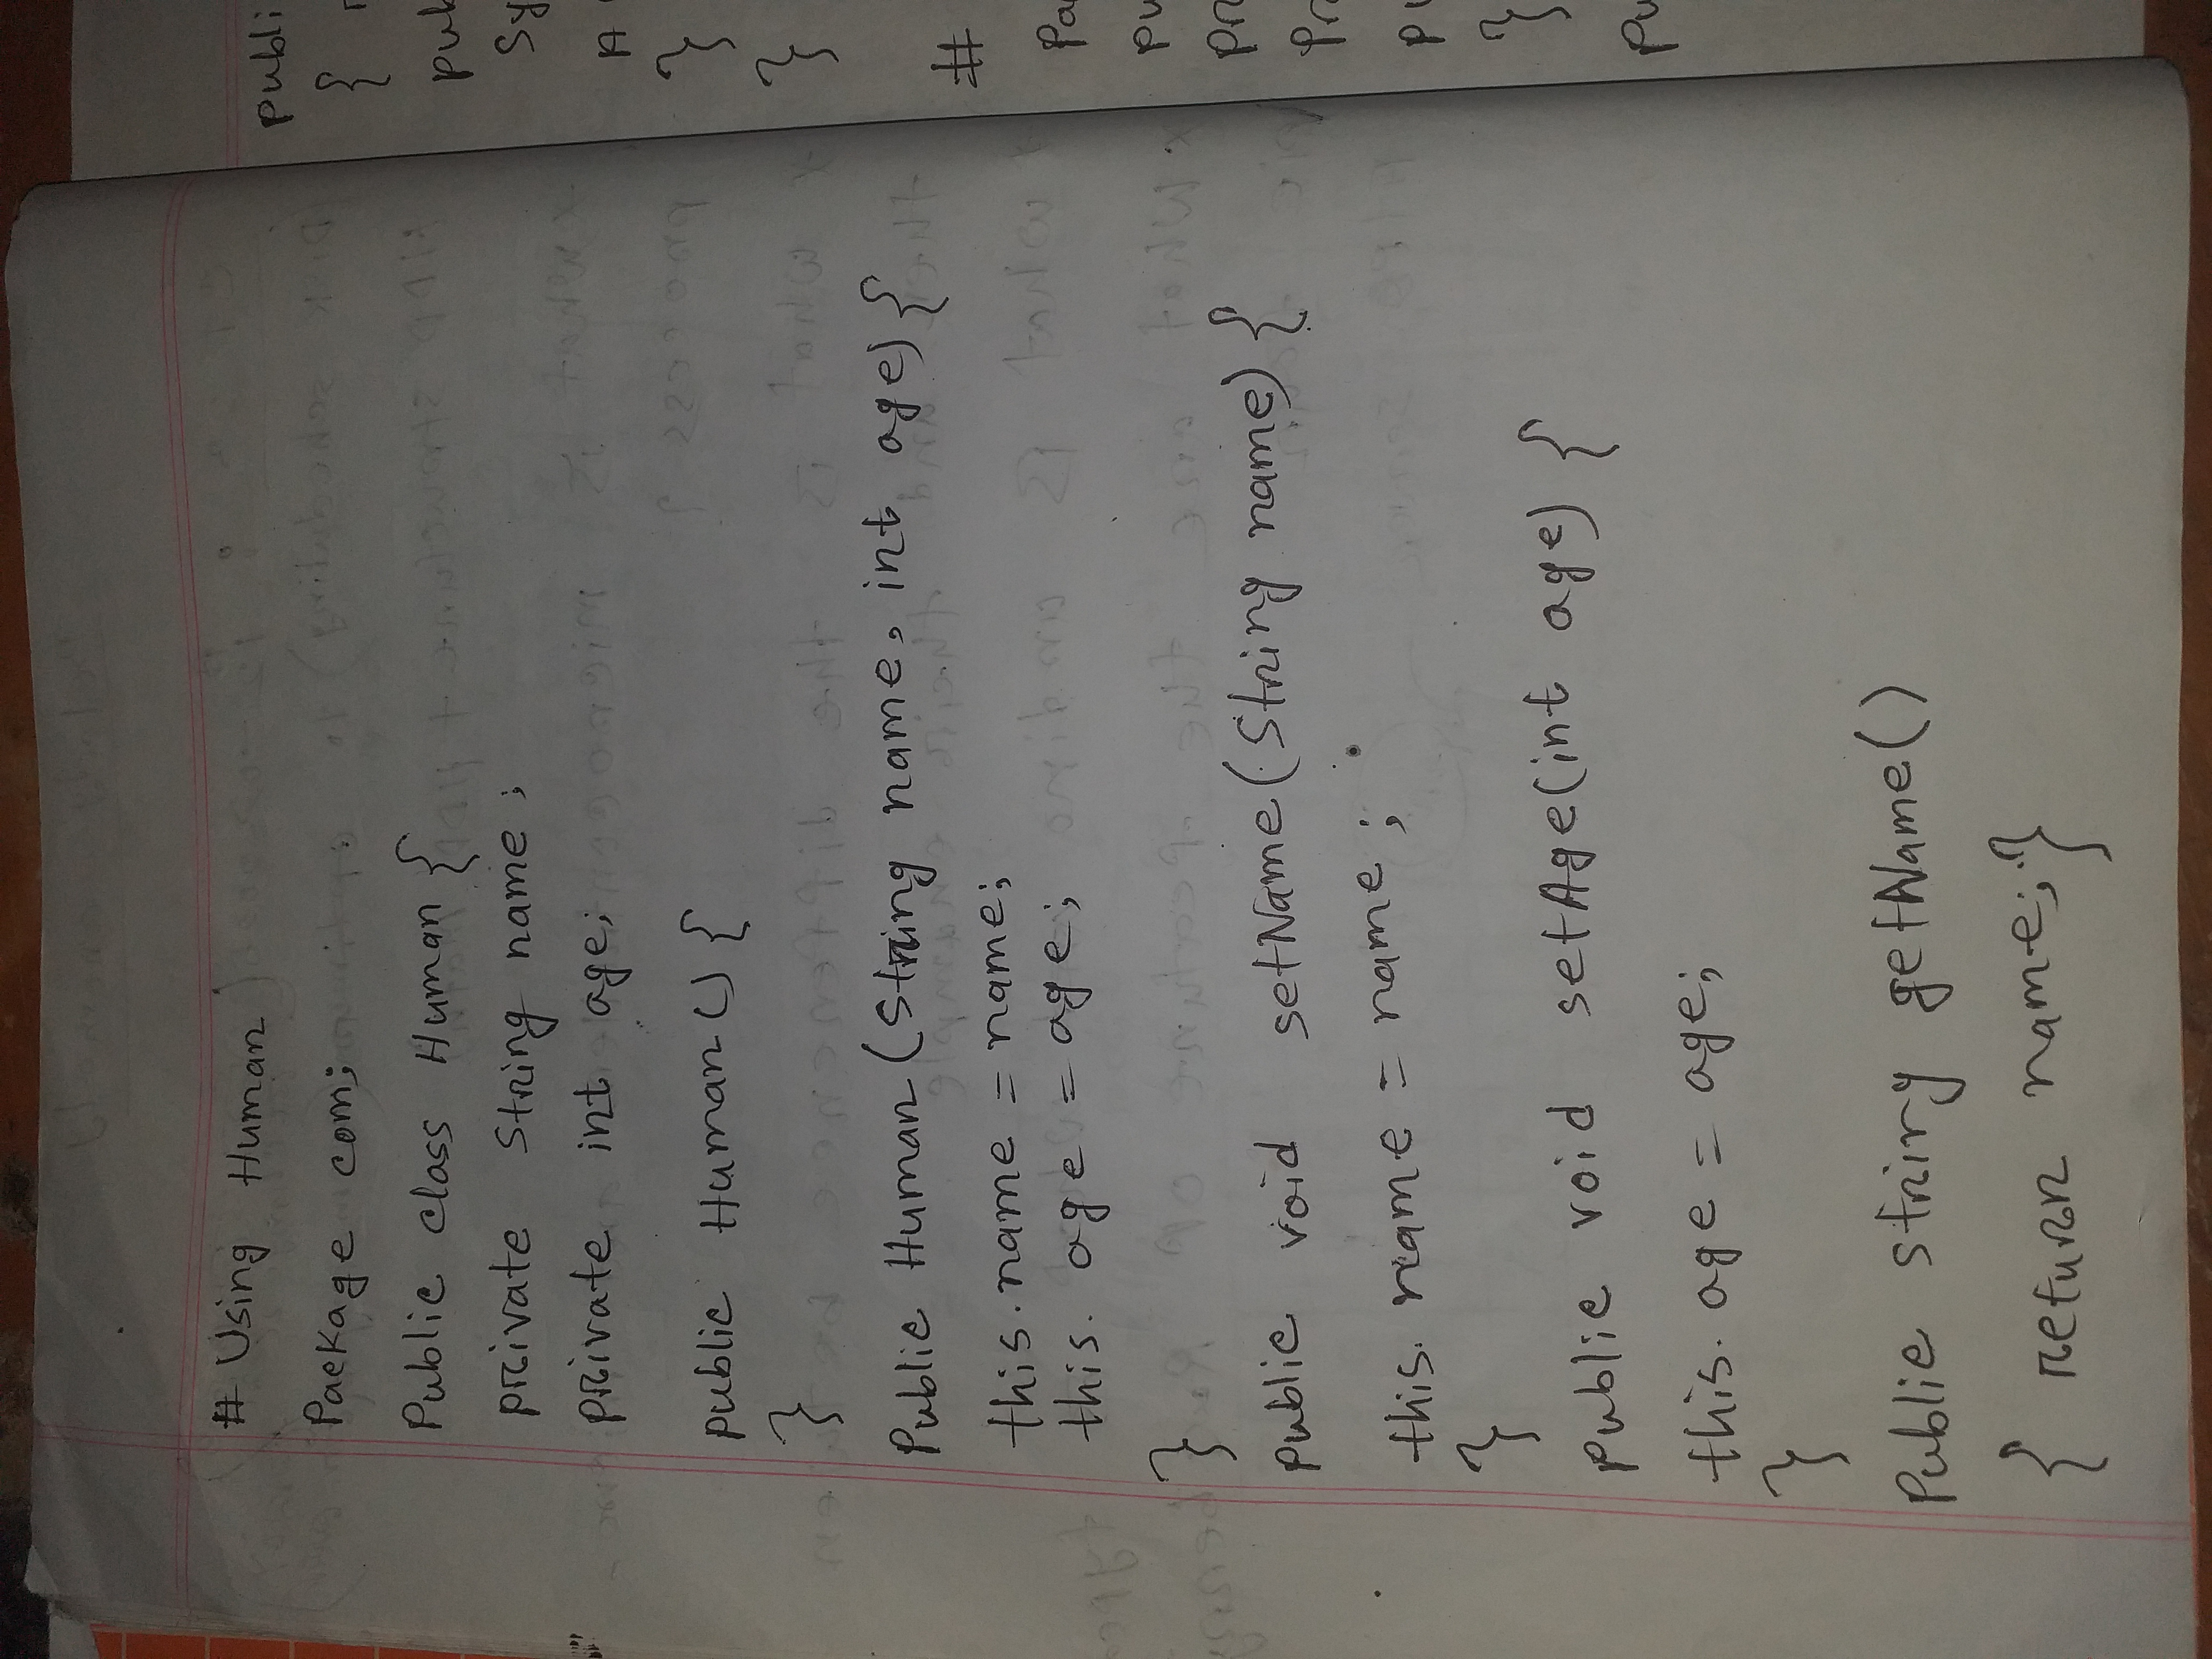 # Using Human
Package com;
Public class Human {
private String name ;
private int age;
public Human () {
}
Public Human (String name, int age) {
this.name = name;
this. age = age;
}
public void setName (String name) {
this. name = name ;
}
public void setAge (int age) {
this. age = age;
}
Public string getName()
{ return name; }
publi
{
pub
Sy
A
}
}
#
Pa
pu
pr
Pr
pu
}
pu